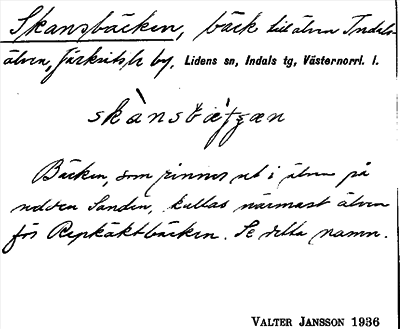 Skansbäcken, bäck till älven Indals-
älven, Järkvitsle by, Lidens sn, Indals tg, Västernorrl. l.
skànsbæ̀tʃæn
Bäcken, som rinner ut i älven på
udden Sanden, kallas närmast älven
för Repkäktbäcken. Se detta namn.
VALTER JANSSON 1936